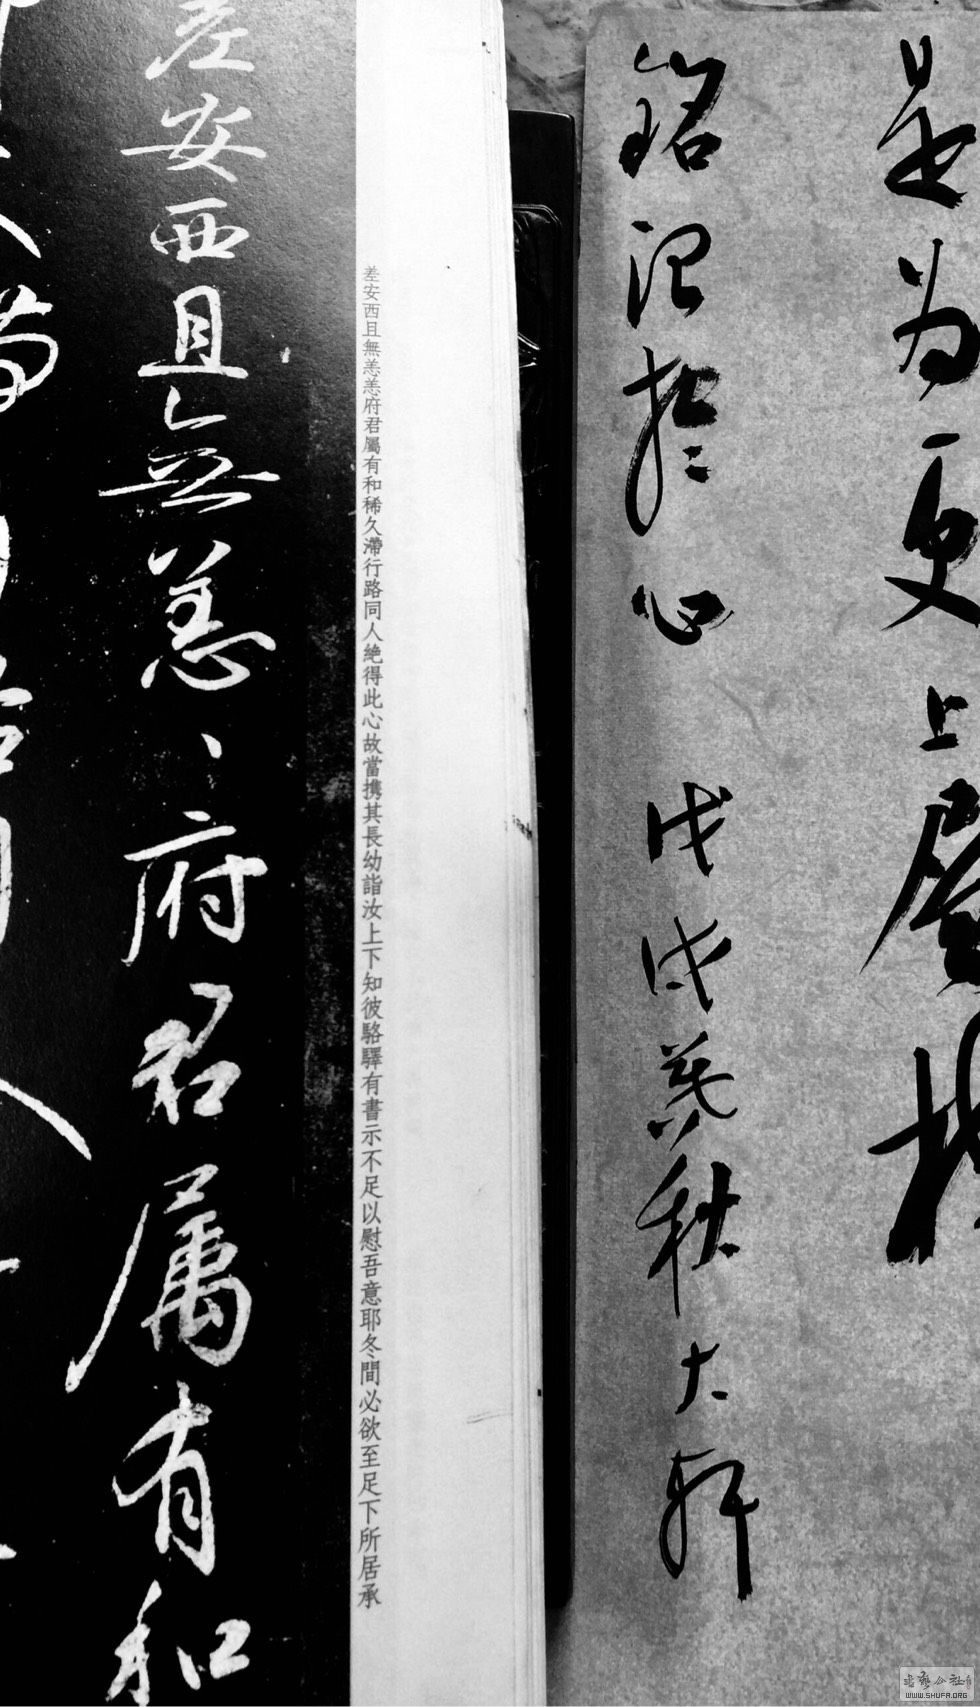 是为更上層
銘记於心 戊戌葵秋大軒
差安西且無恙恙府君屬有和稀久滯行路同人絶得此心故當携其長幼詣汝上下知彼駱驛有書示不足以慰吾意耶冬間必欲至足下所居承
差安西且無恙、府君屬有和
書法公社
WWW.SHUFA.ORG